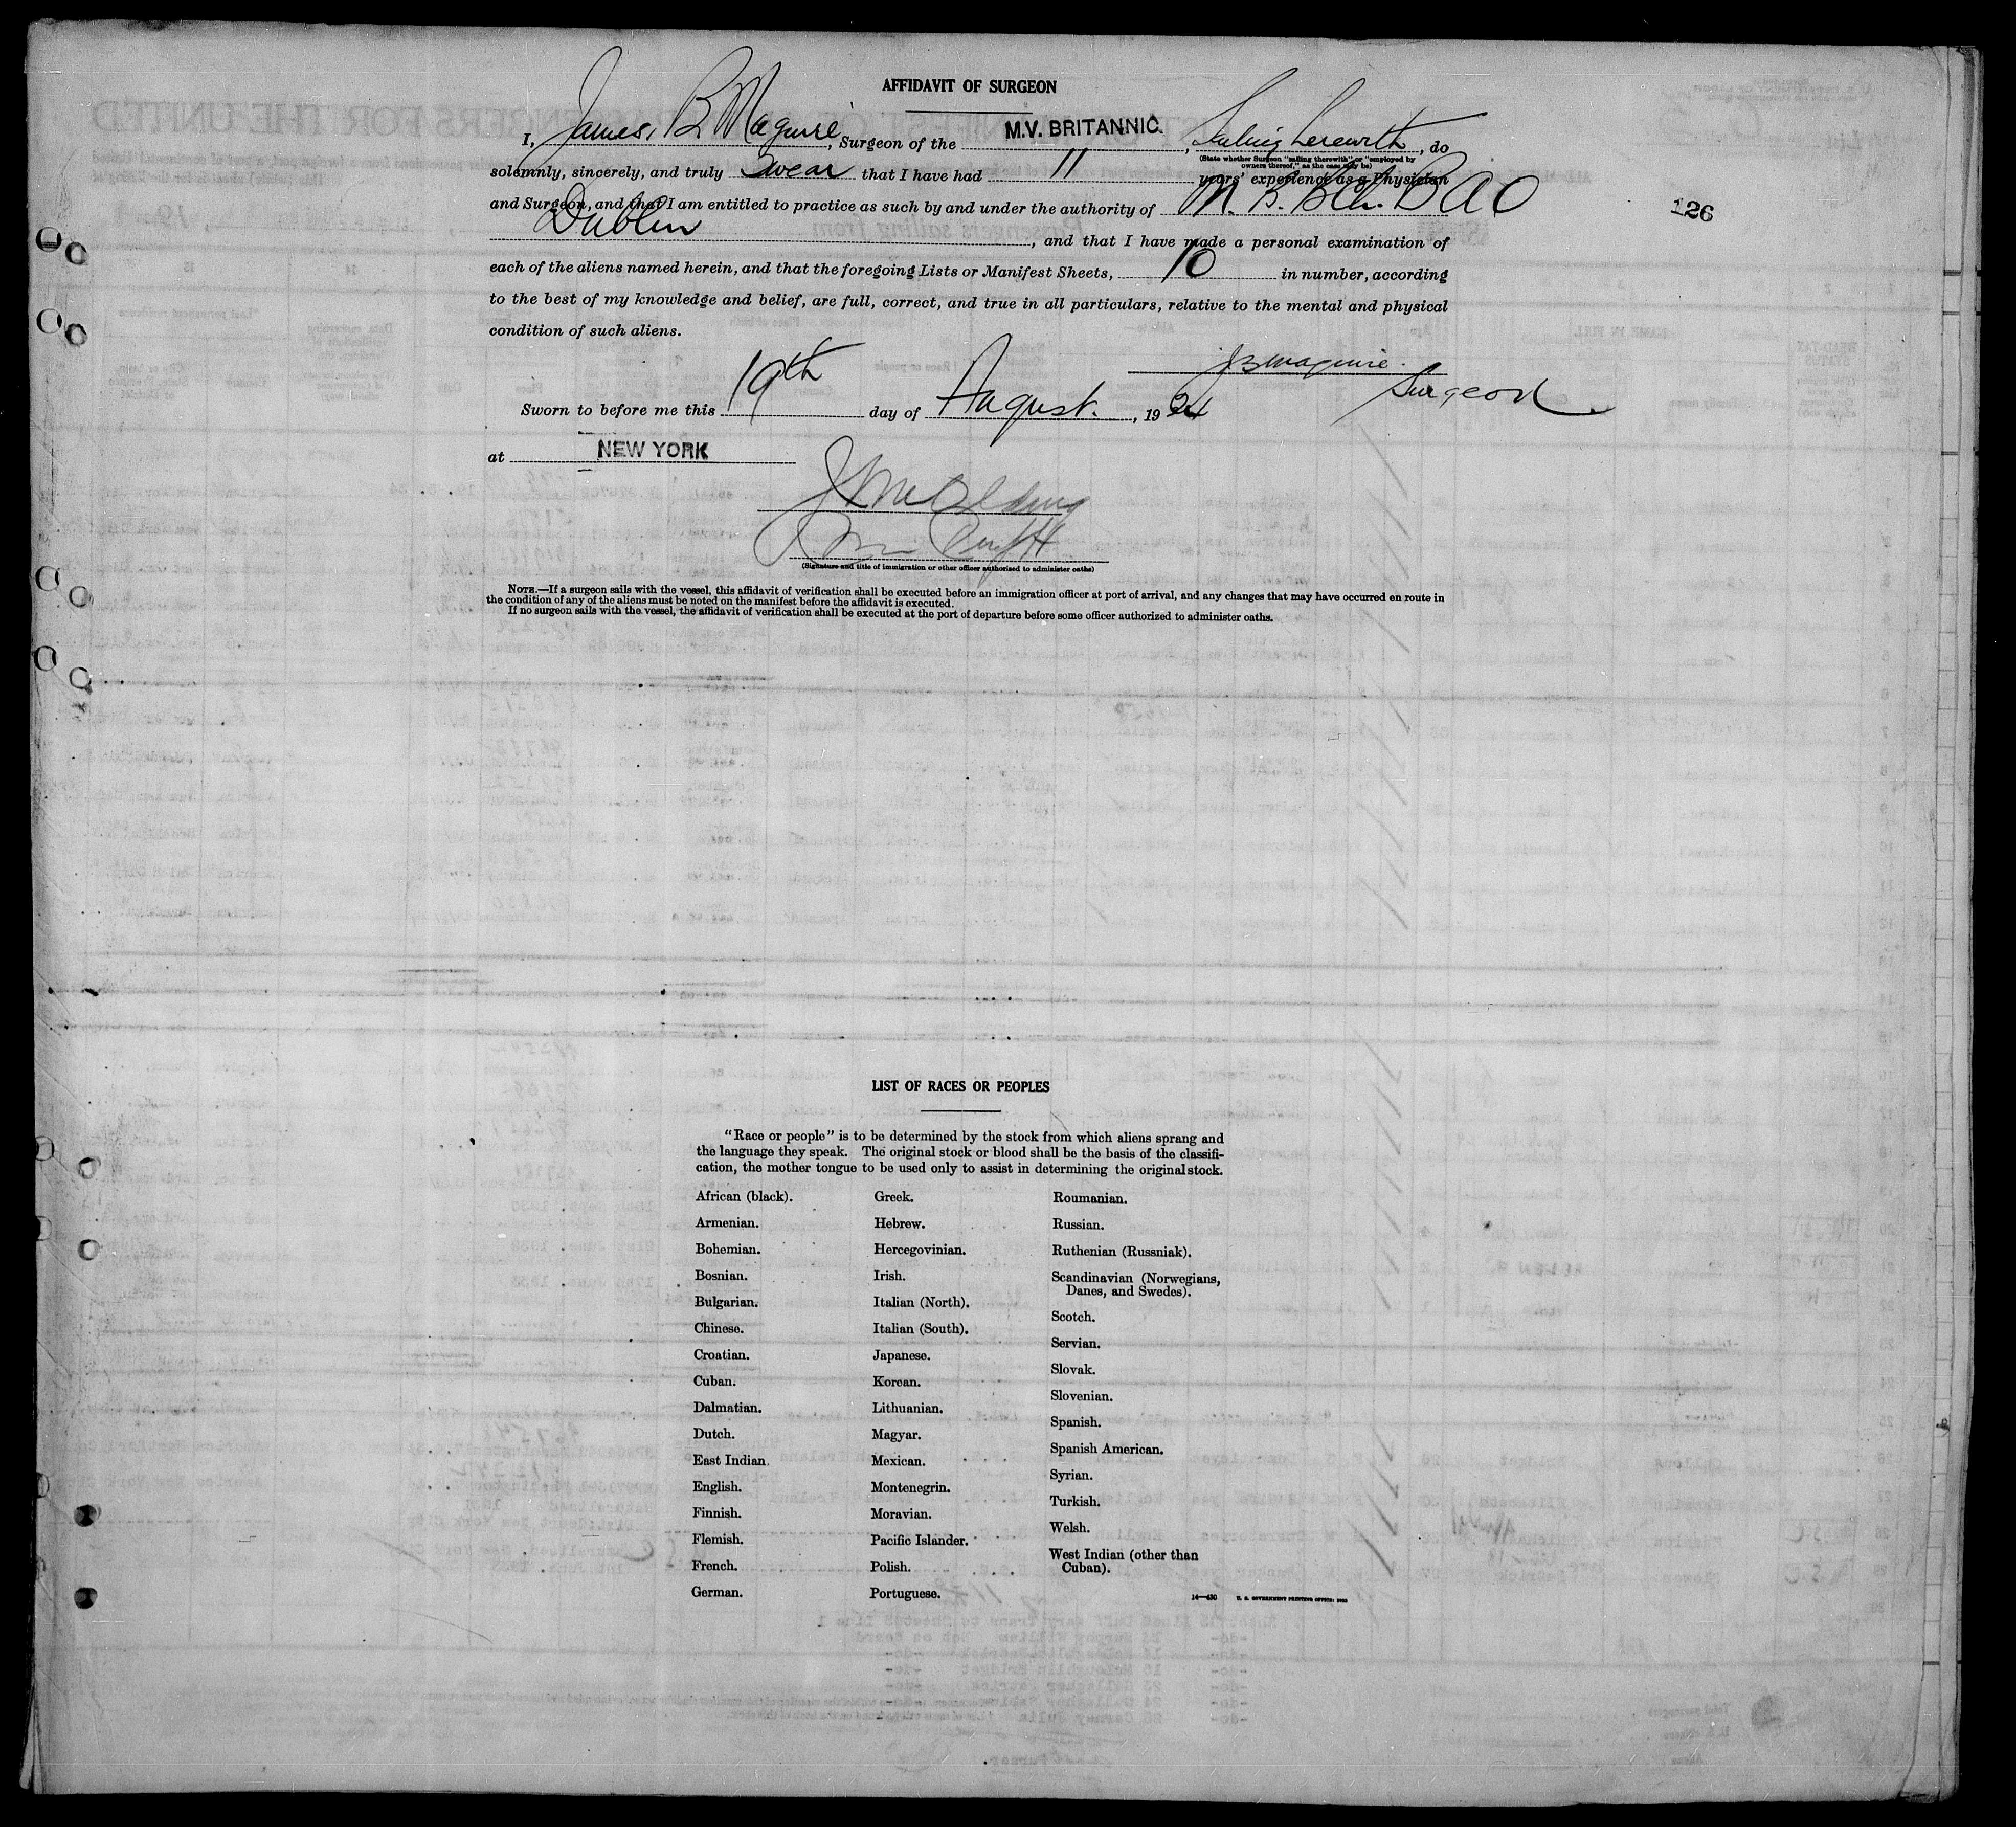 AFFIDAVIT OF SURGEON
I, James, B Maguire, Surgeon of the M.V. BRITANNIC., Sailing herewith, do
(State whether Surgeon "sailing therewith" or "employed by
owners thereof," as the case may be)
solemnly, sincerely, and truly Swear that I have had 11 years' experience as a Physician
and Surgeon, and that I am entitled to practice as such by and under the authority of M. B. BCh. BAO
126
Dublin, and that I have made a personal examination of
each of the aliens named herein, and that the foregoing Lists or Manifest Sheets, 10 in number, according
to the best of my knowledge and belief, are full, correct, and true in all particulars, relative to the mental and physical
condition of such aliens.
JBMaguire.
Surgeon.
Sworn to before me this 19th day of August., 1934
at NEW YORK
(Signature and title of immigration or other officer authorized to administer oaths)
NOTE.—If a surgeon sails with the vessel, this affidavit of verification shall be executed before an immigration officer at port of arrival, and any changes that may have occurred en route in
the condition of any of the aliens must be noted on the manifest before the affidavit is executed.
If no surgeon sails with the vessel, the affidavit of verification shall be executed at the port of departure before some officer authorized to administer oaths.
LIST OF RACES OR PEOPLES
"Race or people" is to be determined by the stock from which aliens sprang and
the language they speak. The original stock or blood shall be the basis of the classifi-
cation, the mother tongue to be used only to assist in determining the original stock.
African (black).
Armenian.
Bohemian.
Bosnian.
Bulgarian.
Chinese.
Croatian.
Cuban.
Dalmatian.
Dutch.
East Indian.
English.
Finnish.
Flemish.
French.
German.
Greek.
Hebrew.
Hercegovinian.
Irish.
Italian (North).
Italian (South).
Japanese.
Korean.
Lithuanian.
Magyar.
Mexican.
Montenegrin.
Moravian.
Pacific Islander.
Polish.
Portuguese.
Roumanian.
Russian.
Ruthenian (Russniak).
Scandinavian (Norwegians,
Danes, and Swedes).
Scotch.
Servian.
Slovak.
Slovenian.
Spanish.
Spanish American.
Syrian.
Turkish.
Welsh.
West Indian (other than
Cuban).
14—430 U. S. GOVERNMENT PRINTING OFFICE: